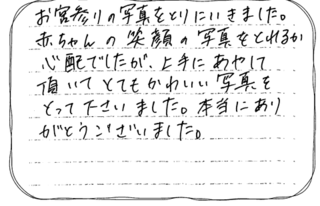 お宮参りの写真をとりにいきました。
赤ちゃんの笑顔の写真をとれるか
心配でしたが、上手にあやして
頂いてとてもかわいい写真を
とって下さいました。本当にあり
がとうございました。